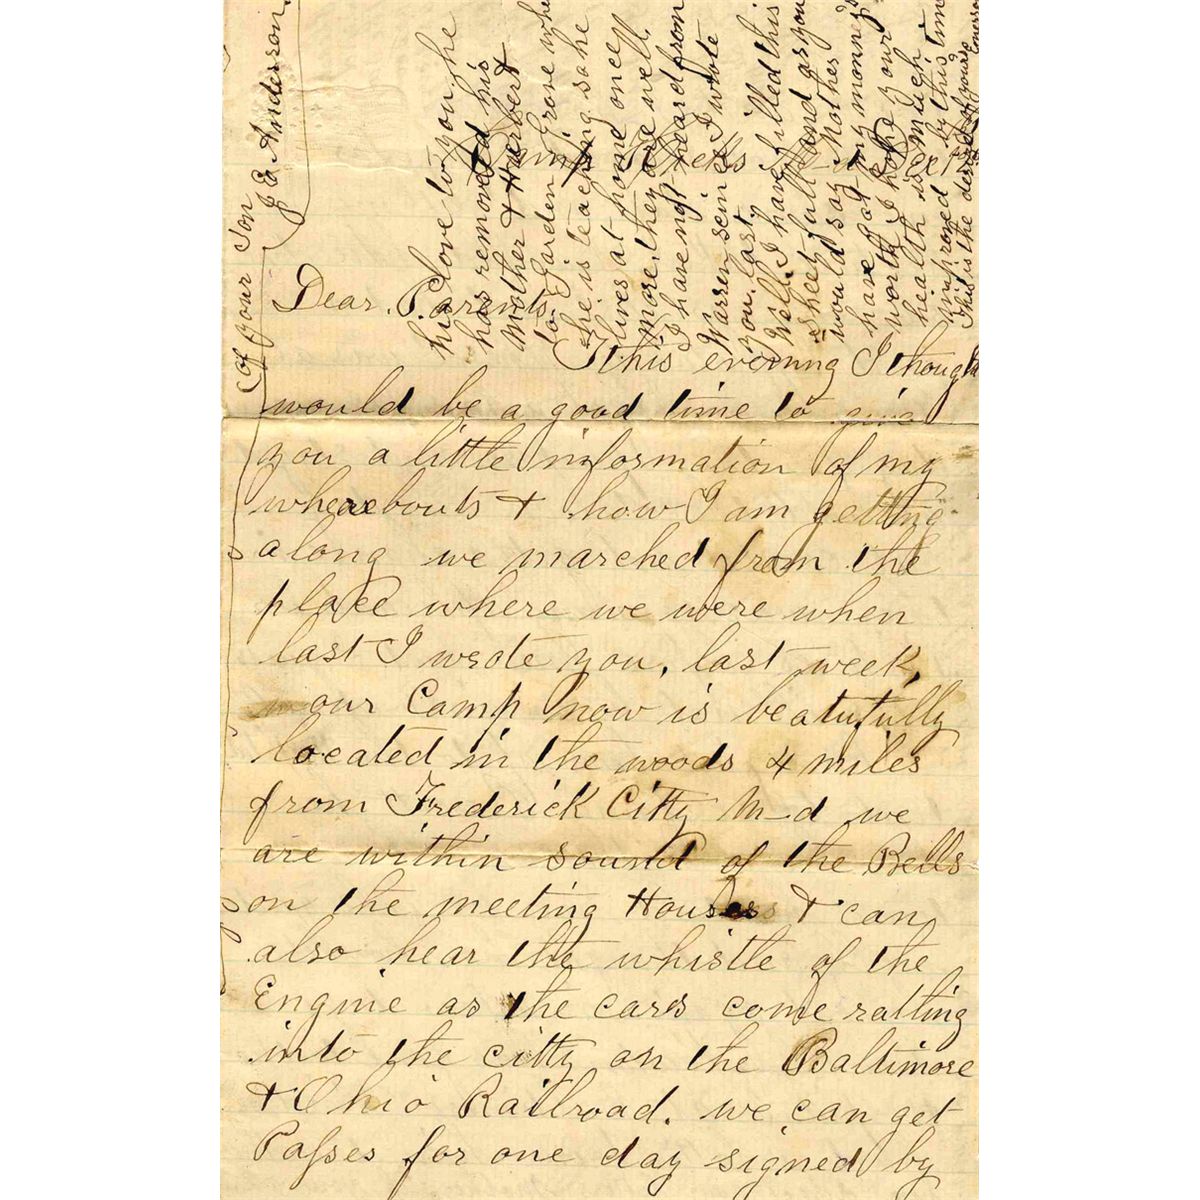 Camp
Dear Parents
This evening I though
would be a good time to give
you a little information of my
whareabouts & how I am getting
along we marched from the
place where we were when
last I wrote you, last week,
our Camp now is beatufully
located in the woods 4 miles
from Frederick Citty M-d we
are within sound of the Bells
on the meeting Houses & can
also hear the whistle of the
Engine as the cars come ratling
into the citty on the Baltimore
& Ohio Railroad. we can get
Passes for one day signed by
his love to you he
has removed his
Mother & Herbert
to Garden Grove whe
she is teaching so he
lives at home once
more, they are well
I have not heard from
Warren seince I wrote
you last
Well I have filled this
sheet full and as you
would say Mother
have had my monneys
worth I hope your
health is much
improved by this time
This is the desire of yours
of your Son
J E Anderson.